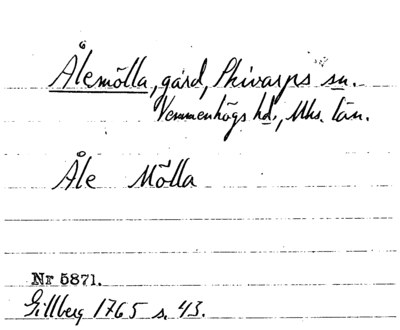 Ålemölla, gård, Skivarps sn.
Vemmenhögs hd., Mhs. län.
Åle Mölla
Nr 5871.
Gillberg 1765 s. 43.